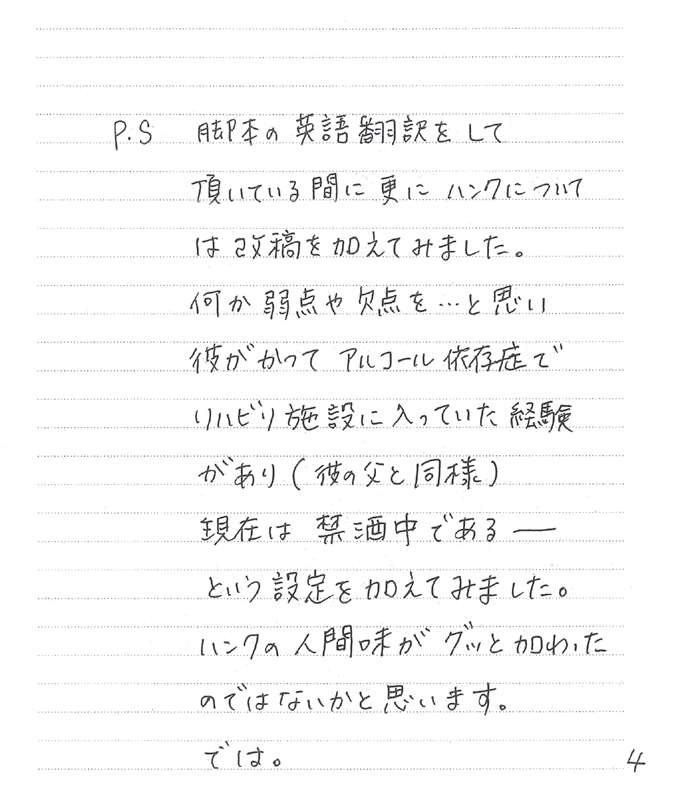 P.S 脚本の英語翻訳をして
頂いている間に更にハンクについて
は改稿を加えてみました。
何か弱点や欠点を…と思い
彼がかつてアルコール依存症で
リハビリ施設に入っていた経験
があり(彼の父と同様)
現在は禁酒中である——
という設定を加えてみました。
ハンクの人間味がグッと加わった
のではないかと思います。
では。
4